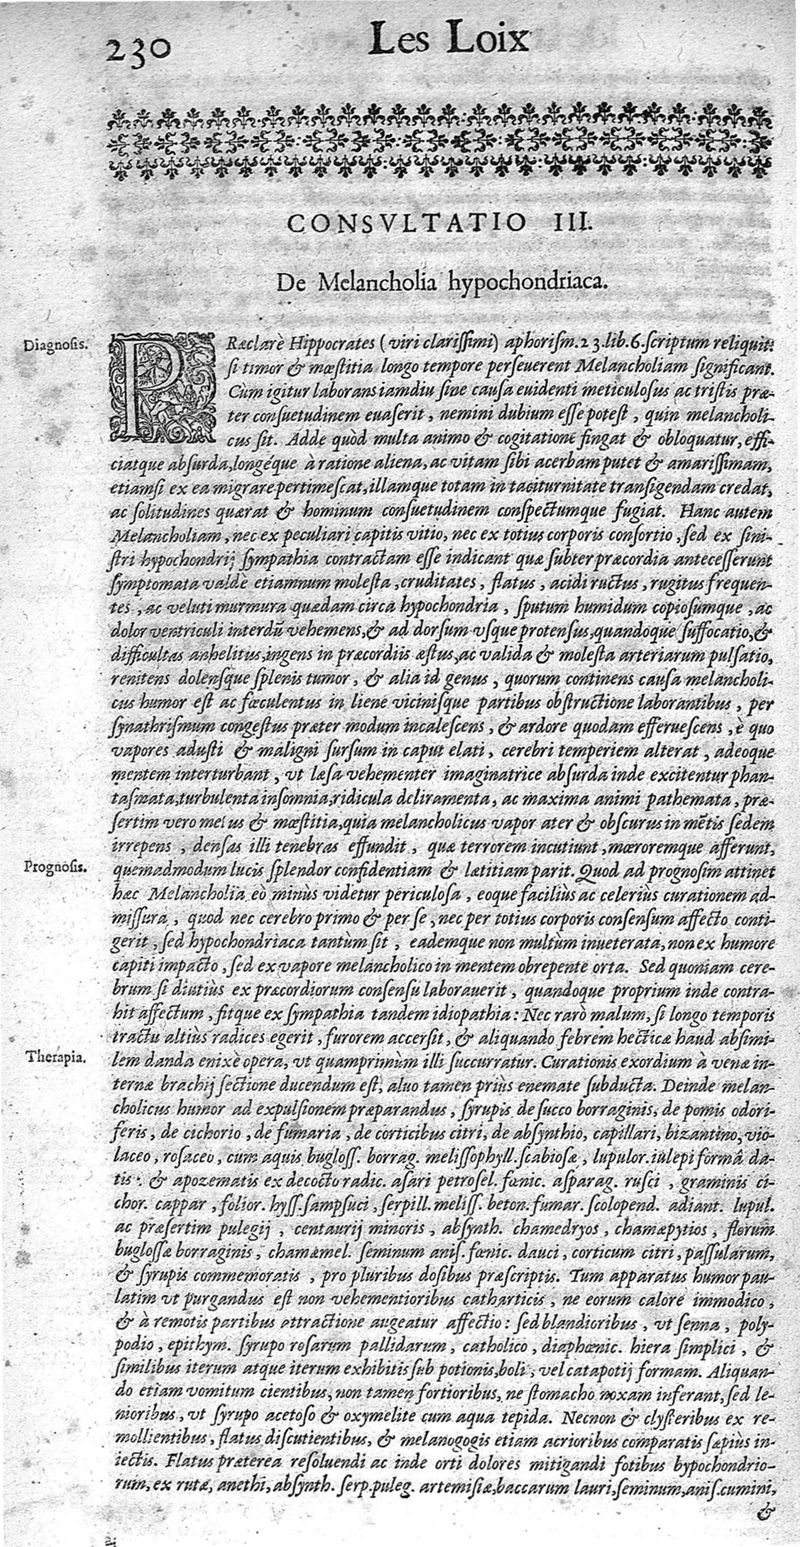 230
Les Loix
CONSVLTATIO III.
De Melancholia hypochondriaca.
Diagnosis.
PRæclarè Hippocrates (viri clarissimi) aphorism. 23. lib. 6. scriptum reliquit:
si timor & mœstitia longo tempore perseuerent Melancholiam significant.
Cùm igitur laborans iamdiu sine causa euidenti meticulosus ac tristis præ-
ter consuetudinem euaserit, nemini dubium esse potest, quin melancholi-
cus sit. Adde quòd multa animo & cogitatione fingat & obloquatur, effi-
ciatque absurda, longéque à ratione aliena, ac vitam sibi acerbam putet & amarissimam,
etiamsi ex ea migrare pertimescat, illamque totam in taciturnitate transigendam credat,
ac solitudines quærat & hominum consuetudinem conspectumque fugiat. Hanc autem
Melancholiam, nec ex peculiari capitis vitio, nec ex totius corporis consortio, sed ex sini-
stri hypochondrij sympathia contractam esse indicant quæ subter præcordia antecesserunt
symptomata valdè etiamnum molesta, cruditates, flatus, acidi ructus, rugitus frequen-
tes, ac veluti murmura quædam circa hypochondria, sputum humidum copiosumque, ac
dolor ventriculi interdũ vehemens, & ad dorsum vsque protensus, quandoque suffocatio, &
difficultas anhelitus, ingens in præcordiis æstus, ac valida & molesta arteriarum pulsatio,
renitens dolensque splenis tumor, & alia id genus, quorum continens causa melancholi-
cus humor est ac fœculentus in liene vicinisque partibus obstructione laborantibus, per
synathrismum congestus præter modum incalescens, & ardore quodam efferuescens, è quo
vapores adusti & maligni sursum in caput elati, cerebri temperiem alterat, adeoque
mentem interturbant, vt læsa vehementer imaginatrice absurda inde excitentur phan-
tasmata, turbulenta insomnia, ridicula deliramenta, ac maxima animi pathemata, præ-
sertim vero metus & mœstitia, quia melancholicus vapor ater & obscurus in mẽtis sedem
irrepens, densas illi tenebras effundit, quæ terrorem incutiunt, mœroremque afferunt,
Prognosis.
quemadmodum lucis splendor confidentiam & lætitiam parit. Quod ad prognosim attinet
hæc Melancholia eò minùs videtur periculosa, eoque faciliùs ac celeriùs curationem ad-
missura, quod nec cerebro primo & per se, nec per totius corporis consensum affecto conti-
gerit, sed hypochondriaca tantùm sit, eademque non multùm inueterata, non ex humore
capiti impacto, sed ex vapore melancholico in mentem obrepente orta. Sed quoniam cere-
brum si diutiùs ex præcordiorum consensu laborauerit, quandoque proprium inde contra-
hit affectum, fitque ex sympathia tandem idiopathia: Nec rarò malum, si longo temporis
tractu altiùs radices egerit, furorem accersit, & aliquando febrem hecticæ haud absimi-
Therapia.
lem danda enixè opera, vt quamprimùm illi succurratur. Curationis exordium à venæ in-
ternæ brachij sectione ducendum est, aluo tamen priùs enemate subducta. Deinde melan-
cholicus humor ad expulsionem præparandus, syrupis de succo borraginis, de pomis odori-
feris, de cichorio, de fumaria, de corticibus citri, de absynthio, capillari, bizantino, vio-
laceo, rosaceo, cum aquis bugloss. borrag. melissophyll. scabiosæ, lupulor. iulepi formâ da-
tis: & apozematis ex decocto radic. asari petrosel. fœnic. asparag. rusci, graminis ci-
chor. cappar, folior. hyss. sampsuci, serpill. meliss. beton. fumar. scolopend. adiant. lupul.
ac præsertim pulegij, centaurij minoris, absynth. chamedryos, chamæpytios, florum
buglossæ borraginis, chamæmel. seminum anis. fœnic. dauci, corticum citri, passularum,
& syrupis commemoratis, pro pluribus dosibus præscriptis. Tum apparatus humor pau-
latim vt purgandus est non vehementioribus catharticis, ne eorum calore immodico,
& à remotis partibus attractione augeatur affectio: sed blandioribus, vt senna, poly-
podio, epithym. syrupo rosarum pallidarum, catholico, diaphœnic. hiera simplici, &
similibus iterum atque iterum exhibitis sub potionis, boli, vel catapotij formam. Aliquan-
do etiam vomitum cientibus, non tamen fortioribus, ne stomacho noxam inferant, sed le-
nioribus, vt syrupo acetoso & oxymelite cum aqua tepida. Necnon & clysteribus ex re-
mollientibus, flatus discutientibus, & melanogogis etiam acrioribus comparatis sæpiùs in-
iectis. Flatus præterea resoluendi ac inde orti dolores mitigandi fotibus hypochondrio-
rum, ex rutæ, anethi, absynth. serp. puleg. artemisiæ, baccarum lauri, seminum, anis. cumini,
&